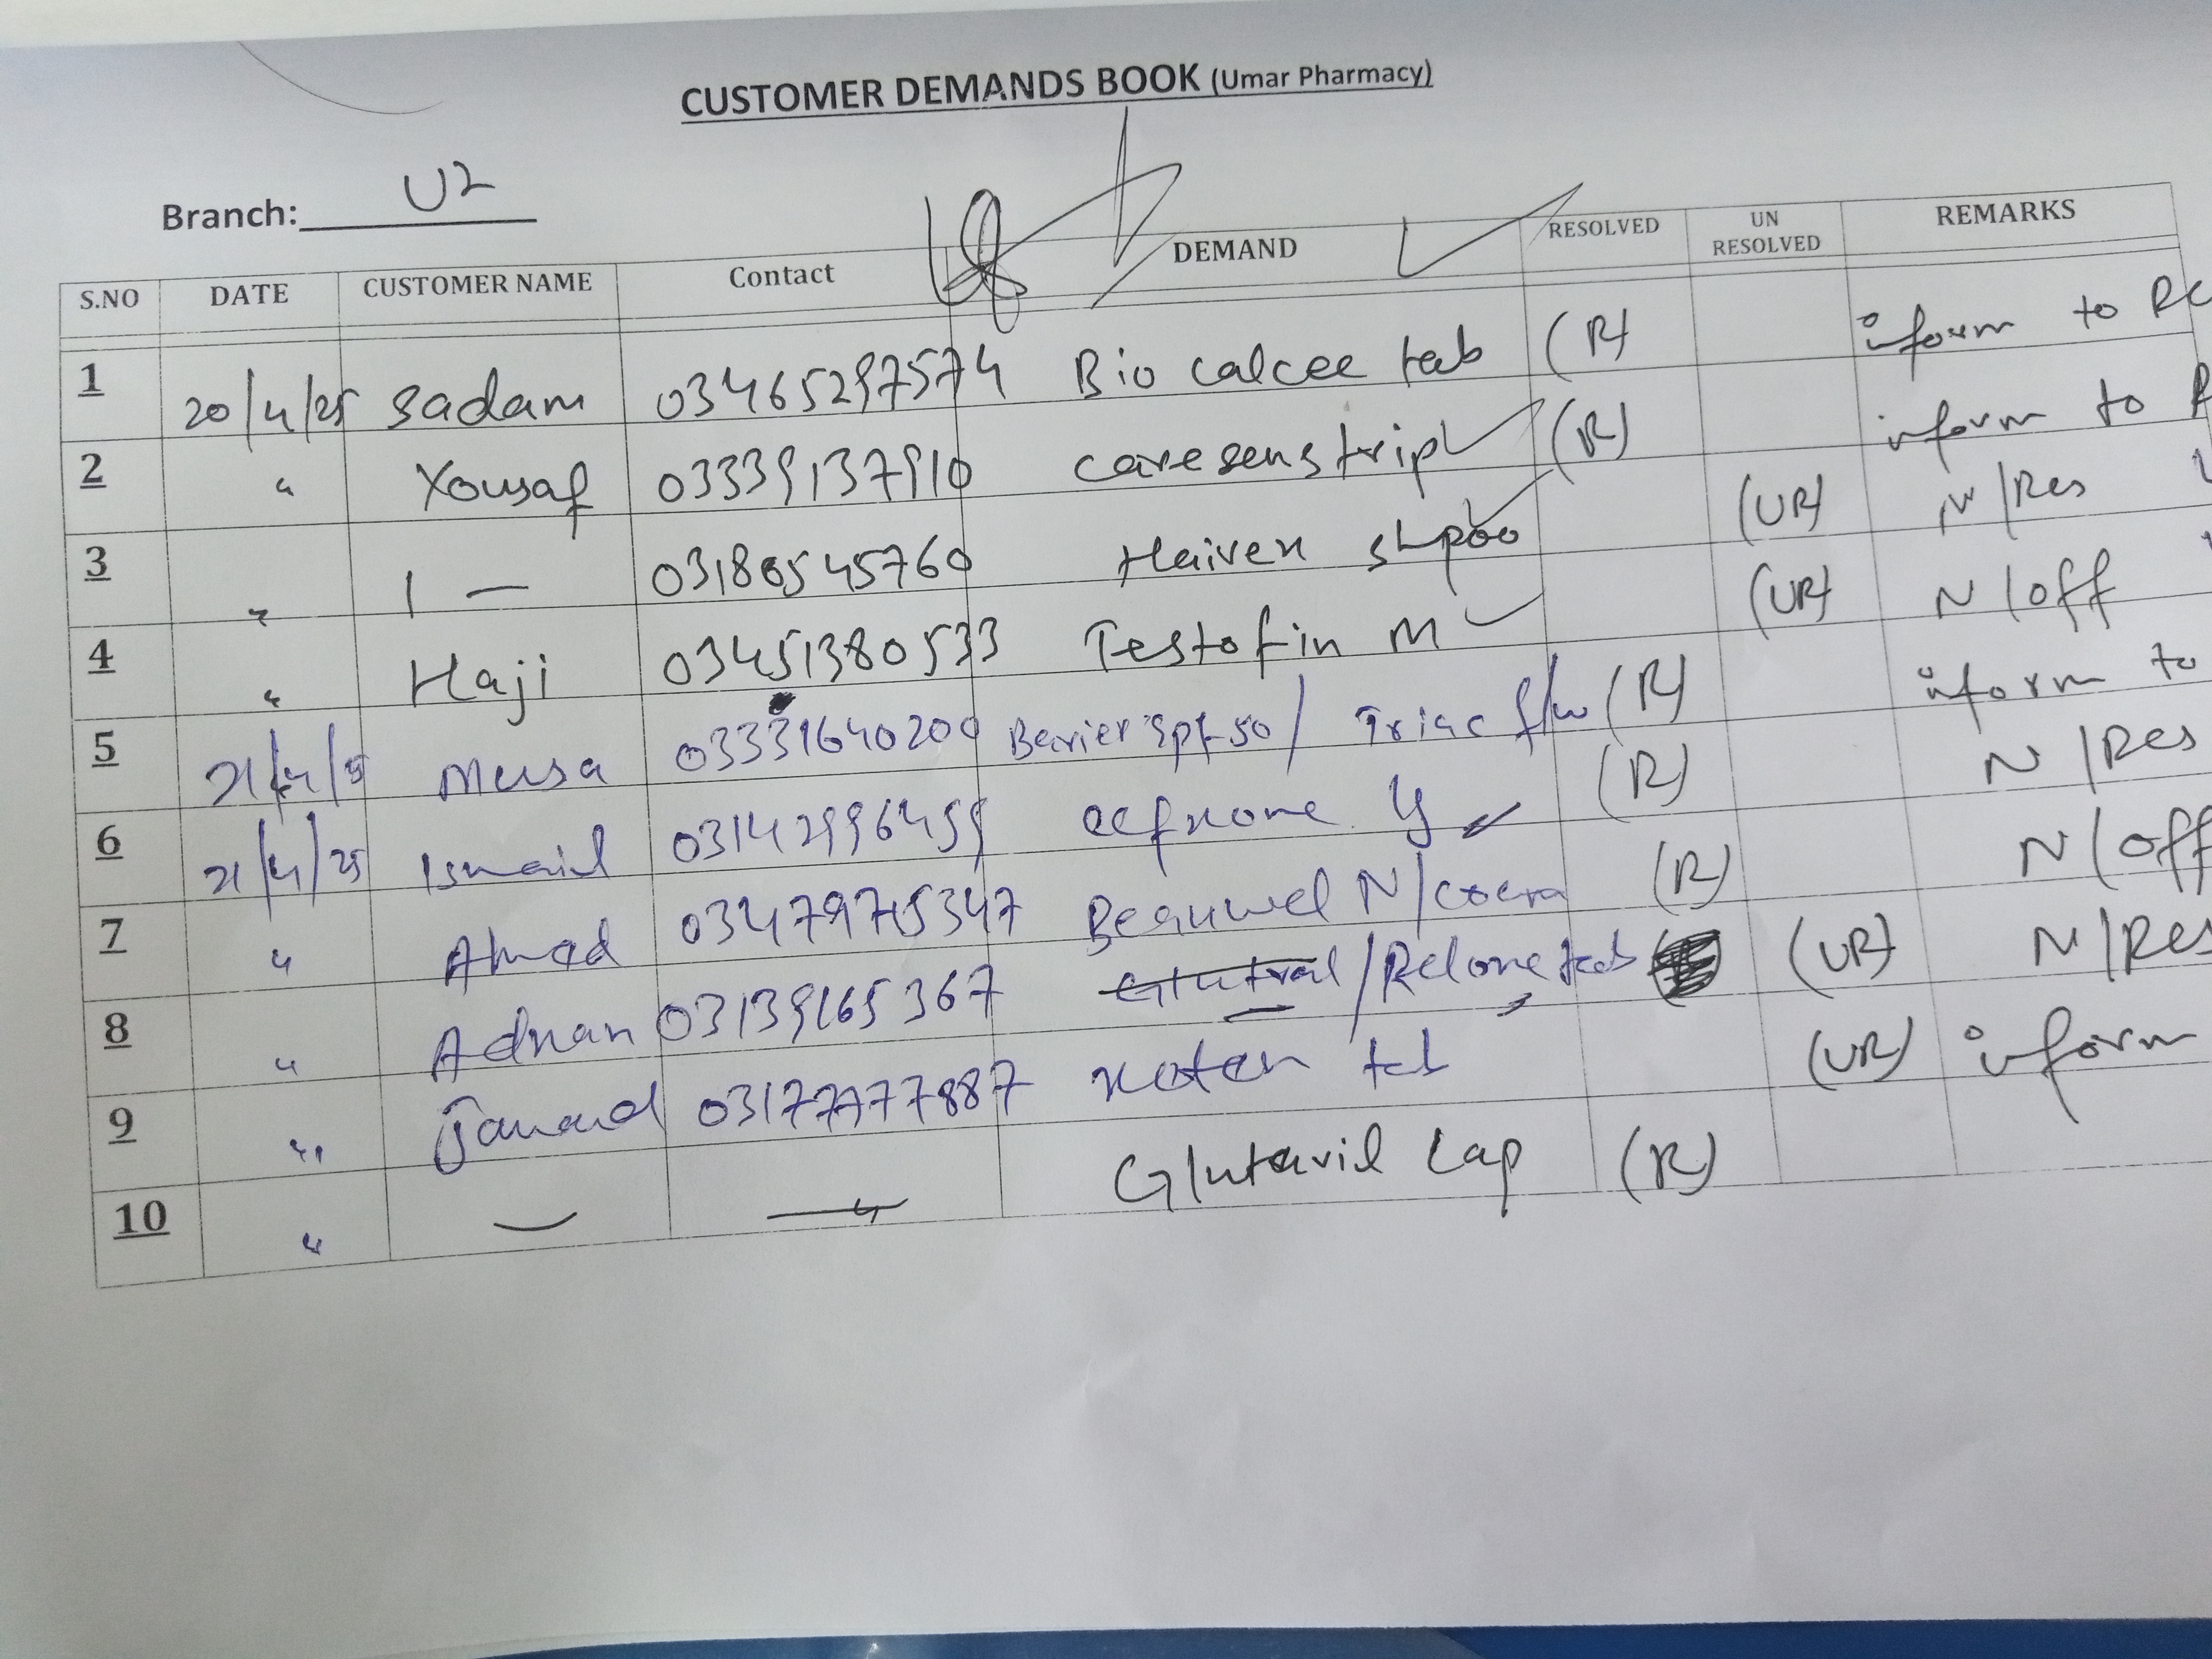 CUSTOMER DEMANDS BOOK (Umar Pharmacy)
Branch: U2
S.NO DATE CUSTOMER NAME Contact DEMAND RESOLVED UN RESOLVED REMARKS
1 20/4/25 Sadam 03465297574 Bio calcee tab (R) inform to
2 " Yousaf 03339137910 caresens trip (R) inform to
3 " 1 — Haiven shpoo (UR) N/Res
4 " Haji 03451380533 Testofin M (UR) N/off
5 21/4/25 Musa 03331640200 Berier spf 50/ Triac f/w (R) inform to
6 21/4/25 Ismail 03142996459 (R) N/Res
7 " Ahmad Beauwel N/ (R) N/off
8 " Adnan 03139165367 /Relone tab (UR) N/Res
9 " 03177777887 xoten tab (UR) inform
10 " — — Glutavil Cap (R)